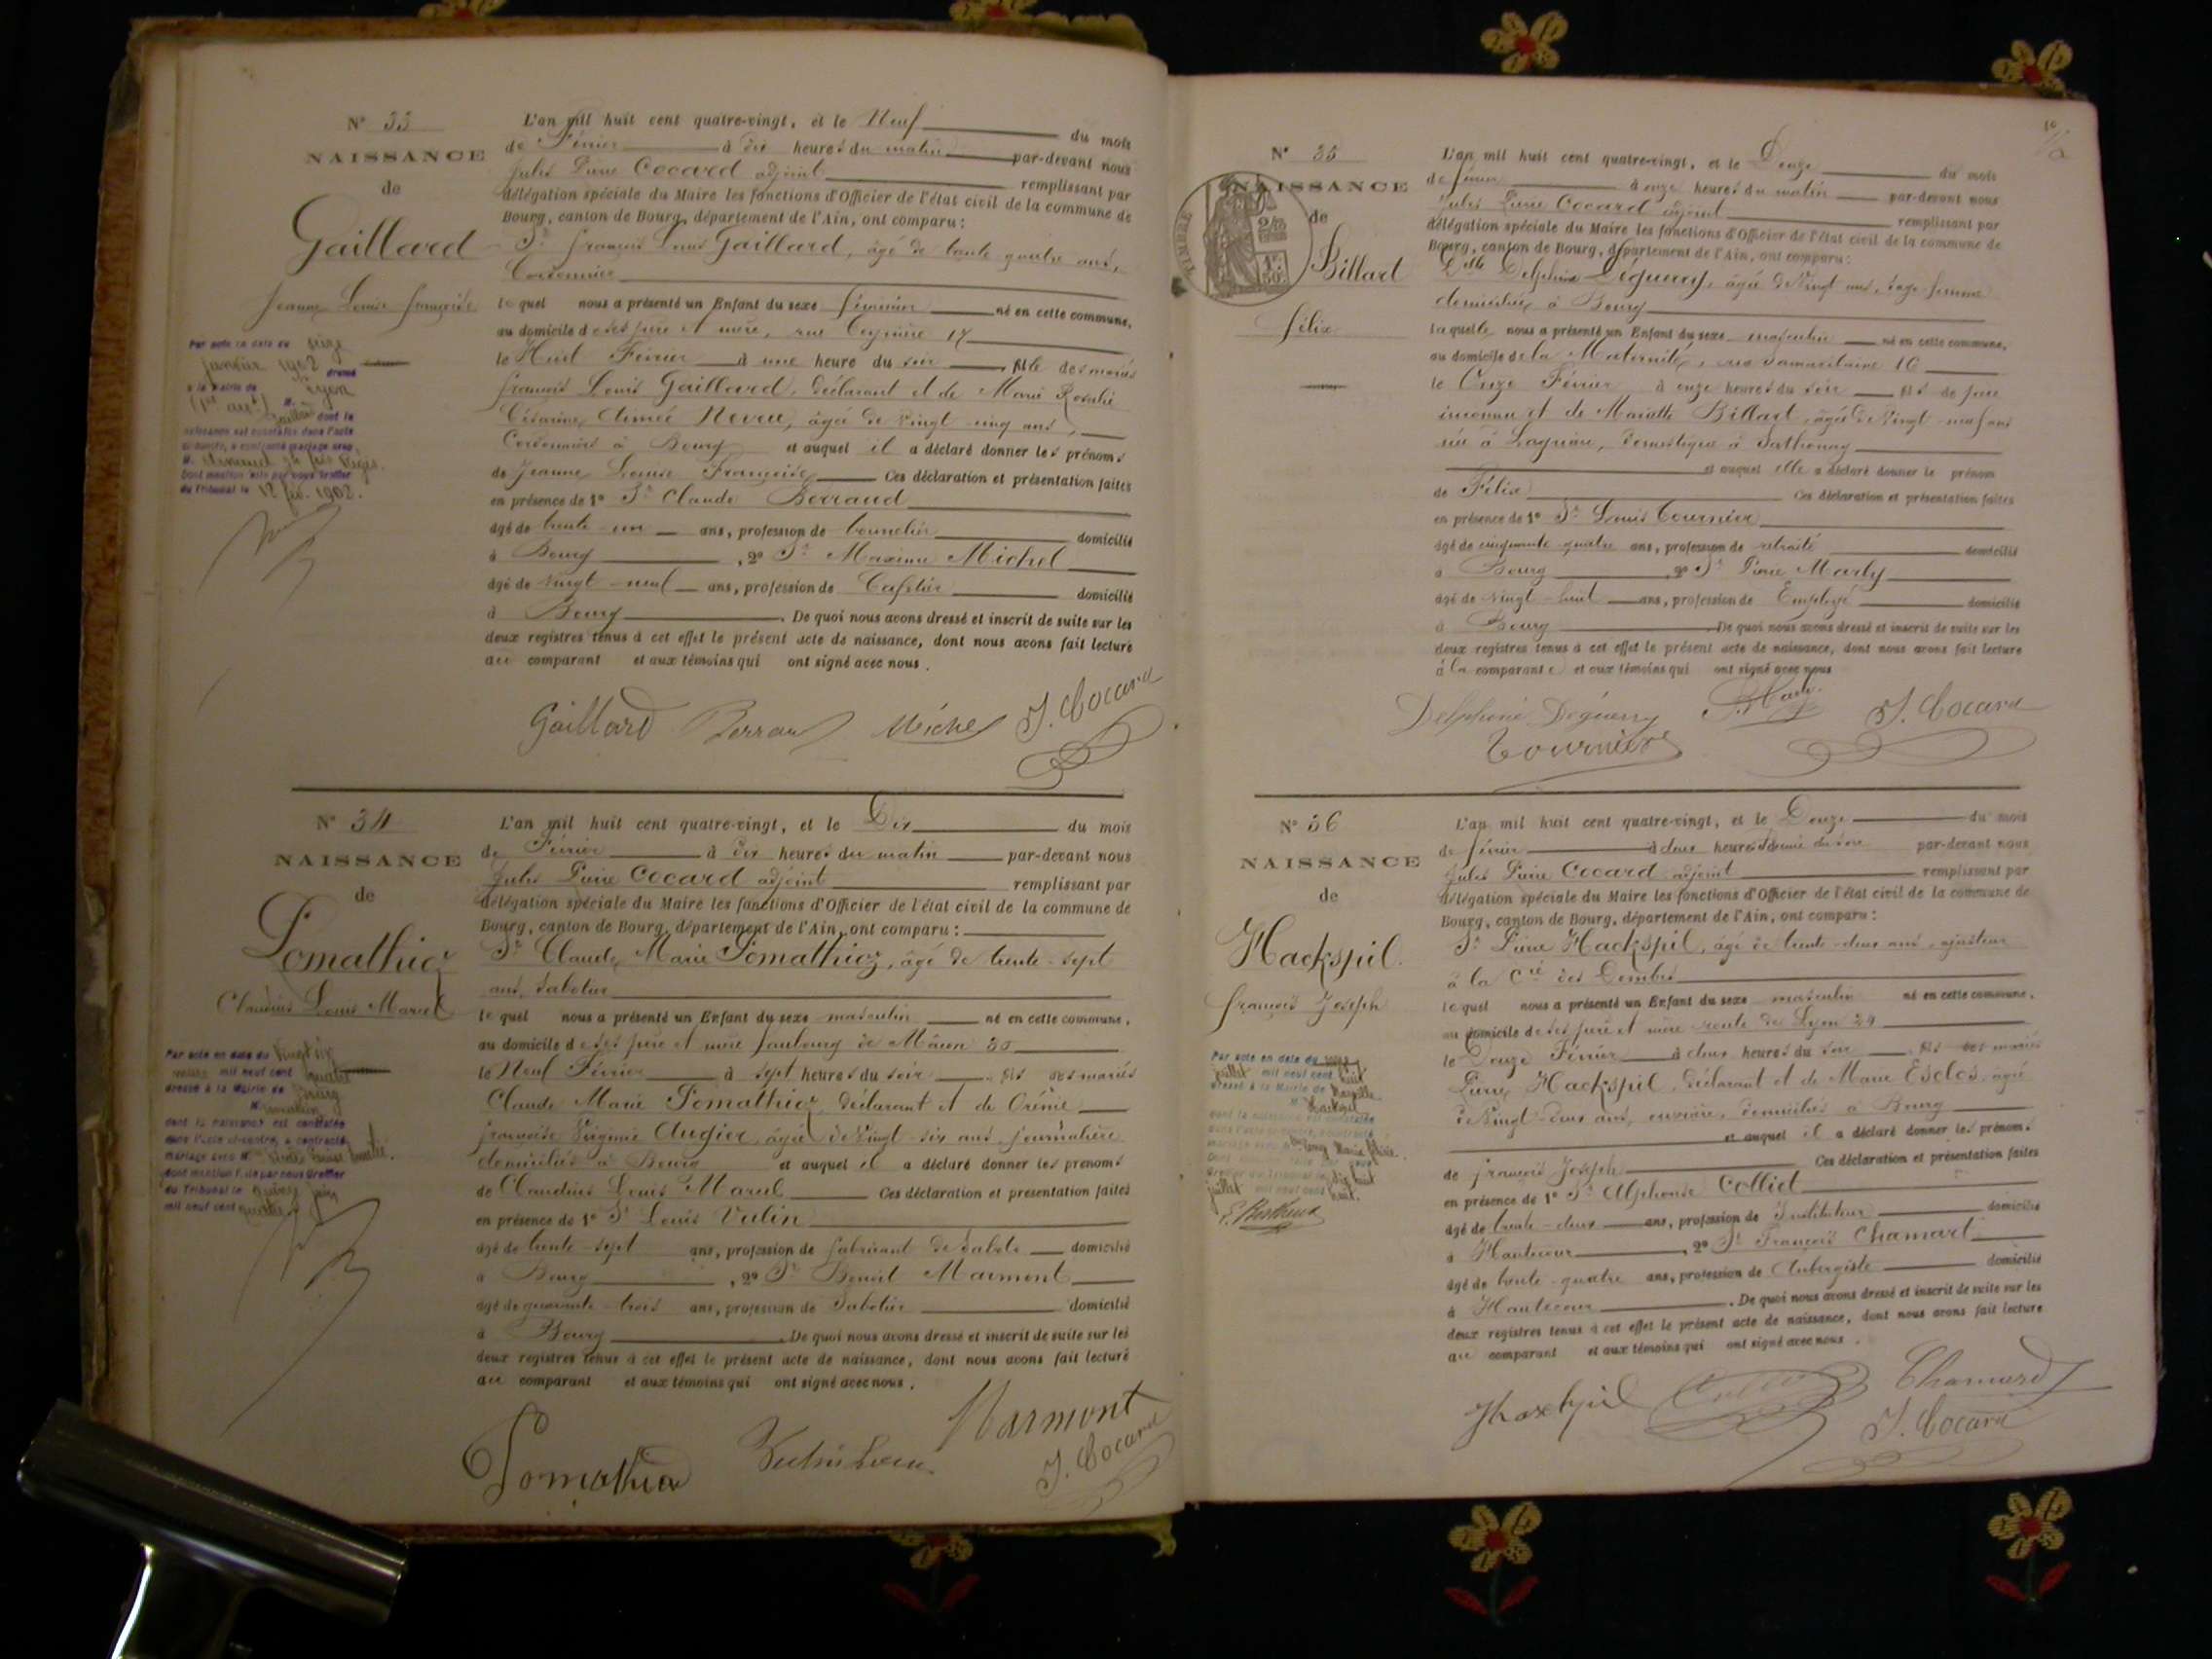 N° 33
NAISSANCE
de
Gaillard
Jeanne Louise Françoise
Par acte en date du seize
janvier 1902 dressé
à la Mairie de Lyon
Gaillard dont la
naissance est constatée dans l'acte
ci-contre, a contracté mariage avec
M.
Dont mention faite par nous Greffier
du Tribunal le 12 fév. 1902.
L'an mil huit cent quatre-vingt, et le Neuf du mois
de Février à dix heures du matin par-devant nous
Jules Pierre Cocard adjoint remplissant par
délégation spéciale du Maire les fonctions d'Officier de l'état civil de la commune de
Bourg, canton de Bourg, département de l'Ain, ont comparu :
Sr François Louis Gaillard, âgé de trente quatre ans,
Cordonnier
lequel nous a présenté un Enfant du sexe féminin né en cette commune,
au domicile de ses père et mère, rue Teynière 17
le Huit Février à une heure du soir fille des mariés
François Louis Gaillard, déclarant et de Marie Rosalie
Césarine Aimée Neveu, âgée de vingt cinq ans,
Cordonniers à Bourg et auquel il a déclaré donner les prénoms
de Jeanne Louise Françoise Ces déclaration et présentation faites
en présence de 1° Sr Claude Berraud
âgé de trente-un ans, profession de tonnelier domicilié
à Bourg, 2° Sr Maxime Michel
âgé de vingt-neuf ans, profession de Cafetier domicilié
à Bourg. De quoi nous avons dressé et inscrit de suite sur les
deux registres tenus à cet effet le présent acte de naissance, dont nous avons fait lecture
au comparant et aux témoins qui ont signé avec nous.
Gaillard Berraud Michel J. Cocard
N° 34
NAISSANCE
de
Pomathioz
Claudius Louis Marcel
Par acte en date du vingt six
mil neuf cent quatre
dressé à la Mairie de Bourg
M. Pomathioz
dont la naissance est constatée
dans l'acte ci-contre, a contracté
mariage avec M
dont mention f. ite par nous Greffier
du Tribunal le quinze juin
mil neuf cent quatre
L'an mil huit cent quatre-vingt, et le Dix du mois
de Février à dix heures du matin par-devant nous
Jules Pierre Cocard adjoint remplissant par
délégation spéciale du Maire les fonctions d'Officier de l'état civil de la commune de
Bourg, canton de Bourg, département de l'Ain, ont comparu :
Sr Claude Marie Pomathioz, âgé de trente-sept
ans, Sabotier
lequel nous a présenté un Enfant du sexe masculin né en cette commune,
au domicile de ses père et mère faubourg de Mâcon 30
le Neuf Février à sept heures du soir fils des mariés
Claude Marie Pomathioz, déclarant et de
Françoise Virginie Augier, âgée de vingt-six ans, journalière
domiciliés à Bourg et auquel il a déclaré donner les prénoms
de Claudius Louis Marcel Ces déclaration et présentation faites
en présence de 1° Sr Louis Vulin
âgé de trente-sept ans, profession de fabricant de sabots domicilié
à Bourg, 2° Sr Benoit Marmont
âgé de quarante-trois ans, profession de Sabotier domicilié
à Bourg. De quoi nous avons dressé et inscrit de suite sur les
deux registres tenus à cet effet le présent acte de naissance, dont nous avons fait lecture
au comparant et aux témoins qui ont signé avec nous.
Pomathioz Marmont J. Cocard
N° 35
NAISSANCE
de
TIMBRE
Billart
Félix
L'an mil huit cent quatre-vingt, et le Douze du mois
de février à onze heures du matin par-devant nous
Jules Pierre Cocard adjoint remplissant par
délégation spéciale du Maire les fonctions d'Officier de l'état civil de la commune de
Bourg, canton de Bourg, département de l'Ain, ont comparu :
Delle Delphine Déguerry, âgée de vingt ans, sage-femme
domiciliée à Bourg
laquelle nous a présenté un Enfant du sexe masculin né en cette commune,
au domicile de la Maternité, rue Samaritaine 16
le Onze Février à onze heures du soir fils de père
inconnu et de Mariette Billart, âgée de vingt-neuf ans
née à Lagnieu, domestique à Sathonay
et auquel elle a déclaré donner le prénom
de Félix Ces déclaration et présentation faites
en présence de 1° Sr Louis Tournier
âgé de cinquante-quatre ans, profession de retraité domicilié
à Bourg, 2° Sr Pierre Marly
âgé de vingt-huit ans, profession de Employé domicilié
à Bourg. De quoi nous avons dressé et inscrit de suite sur les
deux registres tenus à cet effet le présent acte de naissance, dont nous avons fait lecture
à la comparante et aux témoins qui ont signé avec nous
Delphine Déguerry J. Cocard
Tournier
N° 36
NAISSANCE
de
Hackspil
François Joseph
Par acte en date du
juillet mil neuf cent huit
dressé à la Mairie de Marseille
M. Hackspil
juillet mil neuf cent huit.
L'an mil huit cent quatre-vingt, et le Douze du mois
de février à deux heures et demie du soir par-devant nous
Jules Pierre Cocard adjoint remplissant par
délégation spéciale du Maire les fonctions d'Officier de l'état civil de la commune de
Bourg, canton de Bourg, département de l'Ain, ont comparu :
Sr Pierre Hackspil, âgé de trente-deux ans, ajusteur
à la Cie des Dombes
lequel nous a présenté un Enfant du sexe masculin né en cette commune,
au domicile de ses père et mère route de Lyon 24
le Douze Février à deux heures du soir fils des mariés
Pierre Hackspil, déclarant et de Marie Esclos, âgée
de vingt-deux ans, ouvrière, domiciliés à Bourg
et auquel il a déclaré donner les prénoms
de François Joseph Ces déclaration et présentation faites
en présence de 1° Sr Alphonse Colliet
âgé de trente-deux ans, profession de Instituteur domicilié
à Hautecour, 2° Sr François Chamart
âgé de trente-quatre ans, profession de Aubergiste domicilié
à Hautecour. De quoi nous avons dressé et inscrit de suite sur les
deux registres tenus à cet effet le présent acte de naissance, dont nous avons fait lecture
au comparant et aux témoins qui ont signé avec nous.
Hackspil Chamard
J. Cocard